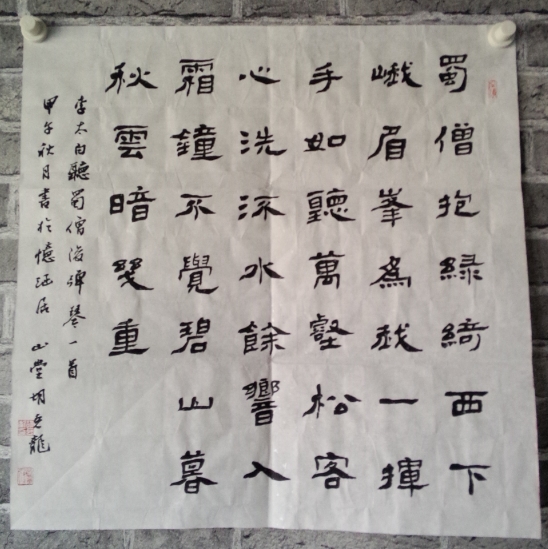 蜀僧抱綠綺西下
峨眉峯為我一揮
手如聽萬壑松客
心洗流水餘響入
霜鐘不覺碧山暮
秋雲暗幾重
李太白聽蜀僧浚彈琴一首
甲午秋月書於憶居 山堂胡龍